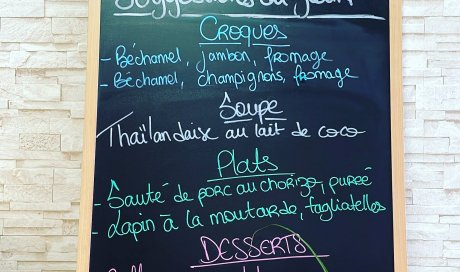 Suggestions du jour
Croques
- Béchamel, jambon, fromage
- Béchamel, champignons, fromage
Soupe
Thaïlandaise au lait de coco
Plats
- Sauté de porc au chorizo, purée
- Lapin à la moutarde, tagliatelles
DESSERTS